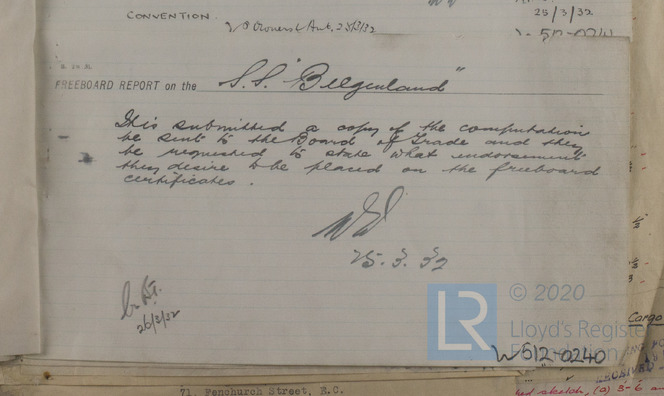 CONVENTION.
25/3/32
25/3/32
FREEBOARD REPORT on the S.S. "Belgenland"
It is submitted a copy of the computation
be sent to the Board of Trade and they
be requested to state what endorsement
they desire to be placed on the freeboard
certificates.
25.3.32
26/3/32
LR © 2020
Lloyd's Register
Foundation
Cargo
W512-0240
RECEIVED
71, Fenchurch Street, E.C.
sketch, (a) 3-6